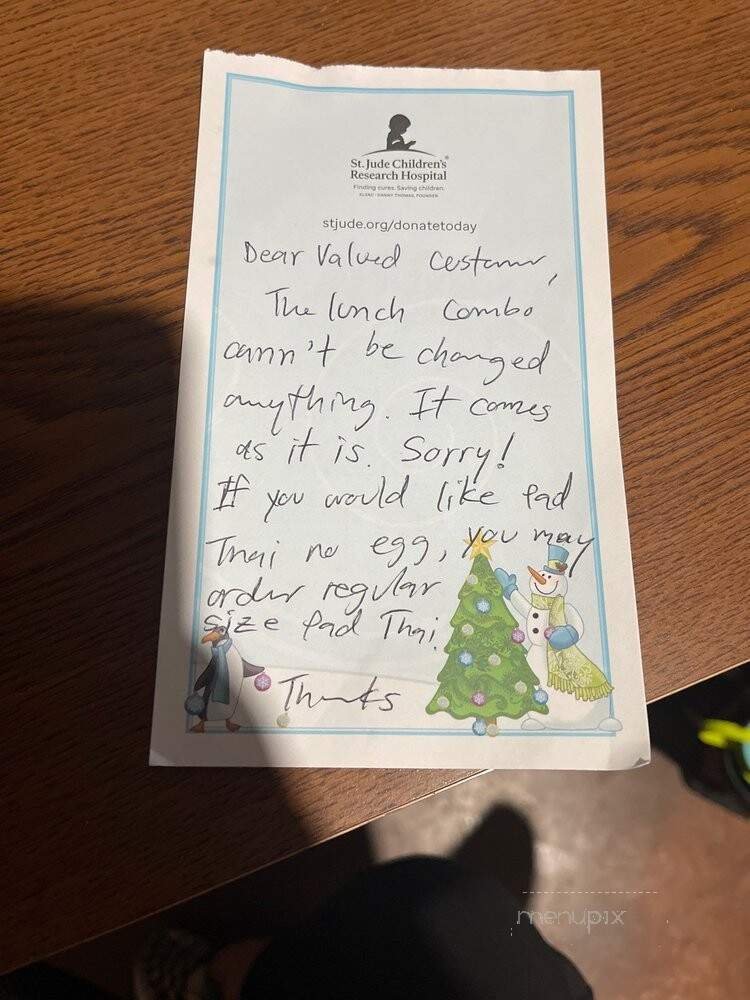 St. Jude Children's®
Research Hospital
Finding cures. Saving children.
ALSAC · DANNY THOMAS, FOUNDER
stjude.org/donatetoday
Dear Valued Customer,
The lunch combo
cann't be changed
anything. It comes
as it is. Sorry!
If you would like Pad
Thai no egg, you may
order regular
size Pad Thai.
Thanks
menupix